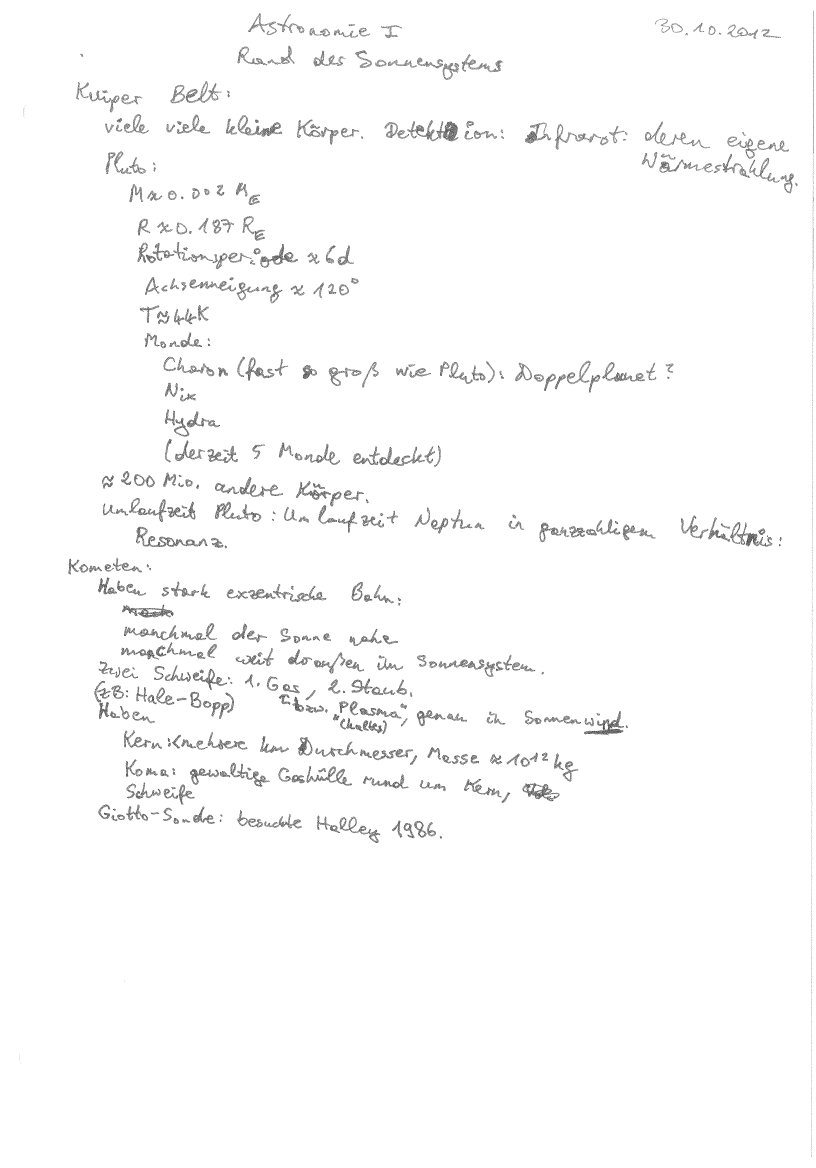 Astronomie I 30.10.2012
Rand des Sonnensystems
Kuiper Belt:
viele viele kleine Körper. Detektion: Infrarot: deren eigene
Wärmestrahlung.
Pluto:
M ≈ 0.002 M_E
R ≈ 0.187 R_E
Rotationsperiode ≈ 6d
Achsenneigung ≈ 120°
T ≈ 44K
Monde:
Charon (fast so groß wie Pluto): Doppelplanet?
Nix
Hydra
(derzeit 5 Monde entdeckt)
≈ 200 Mio. andere Körper.
Umlaufzeit Pluto : Umlaufzeit Neptun in ganzzahligem Verhältnis:
Resonanz.
Kometen:
Haben stark exzentrische Bahn:
manchmal der Sonne nahe
manchmal weit draußen im Sonnensystem.
Zwei Schweife: 1. Gas, 2. Staub.
(zB: Hale-Bopp) bzw. "Plasma", genau in Sonnenwind.
"(kaltes)
Haben
Kern: <mehrere km Durchmesser, Masse ≈ 10¹² kg
Koma: gewaltige Gashülle rund um Kern,
Schweife
Giotto-Sonde: besuchte Halley 1986.